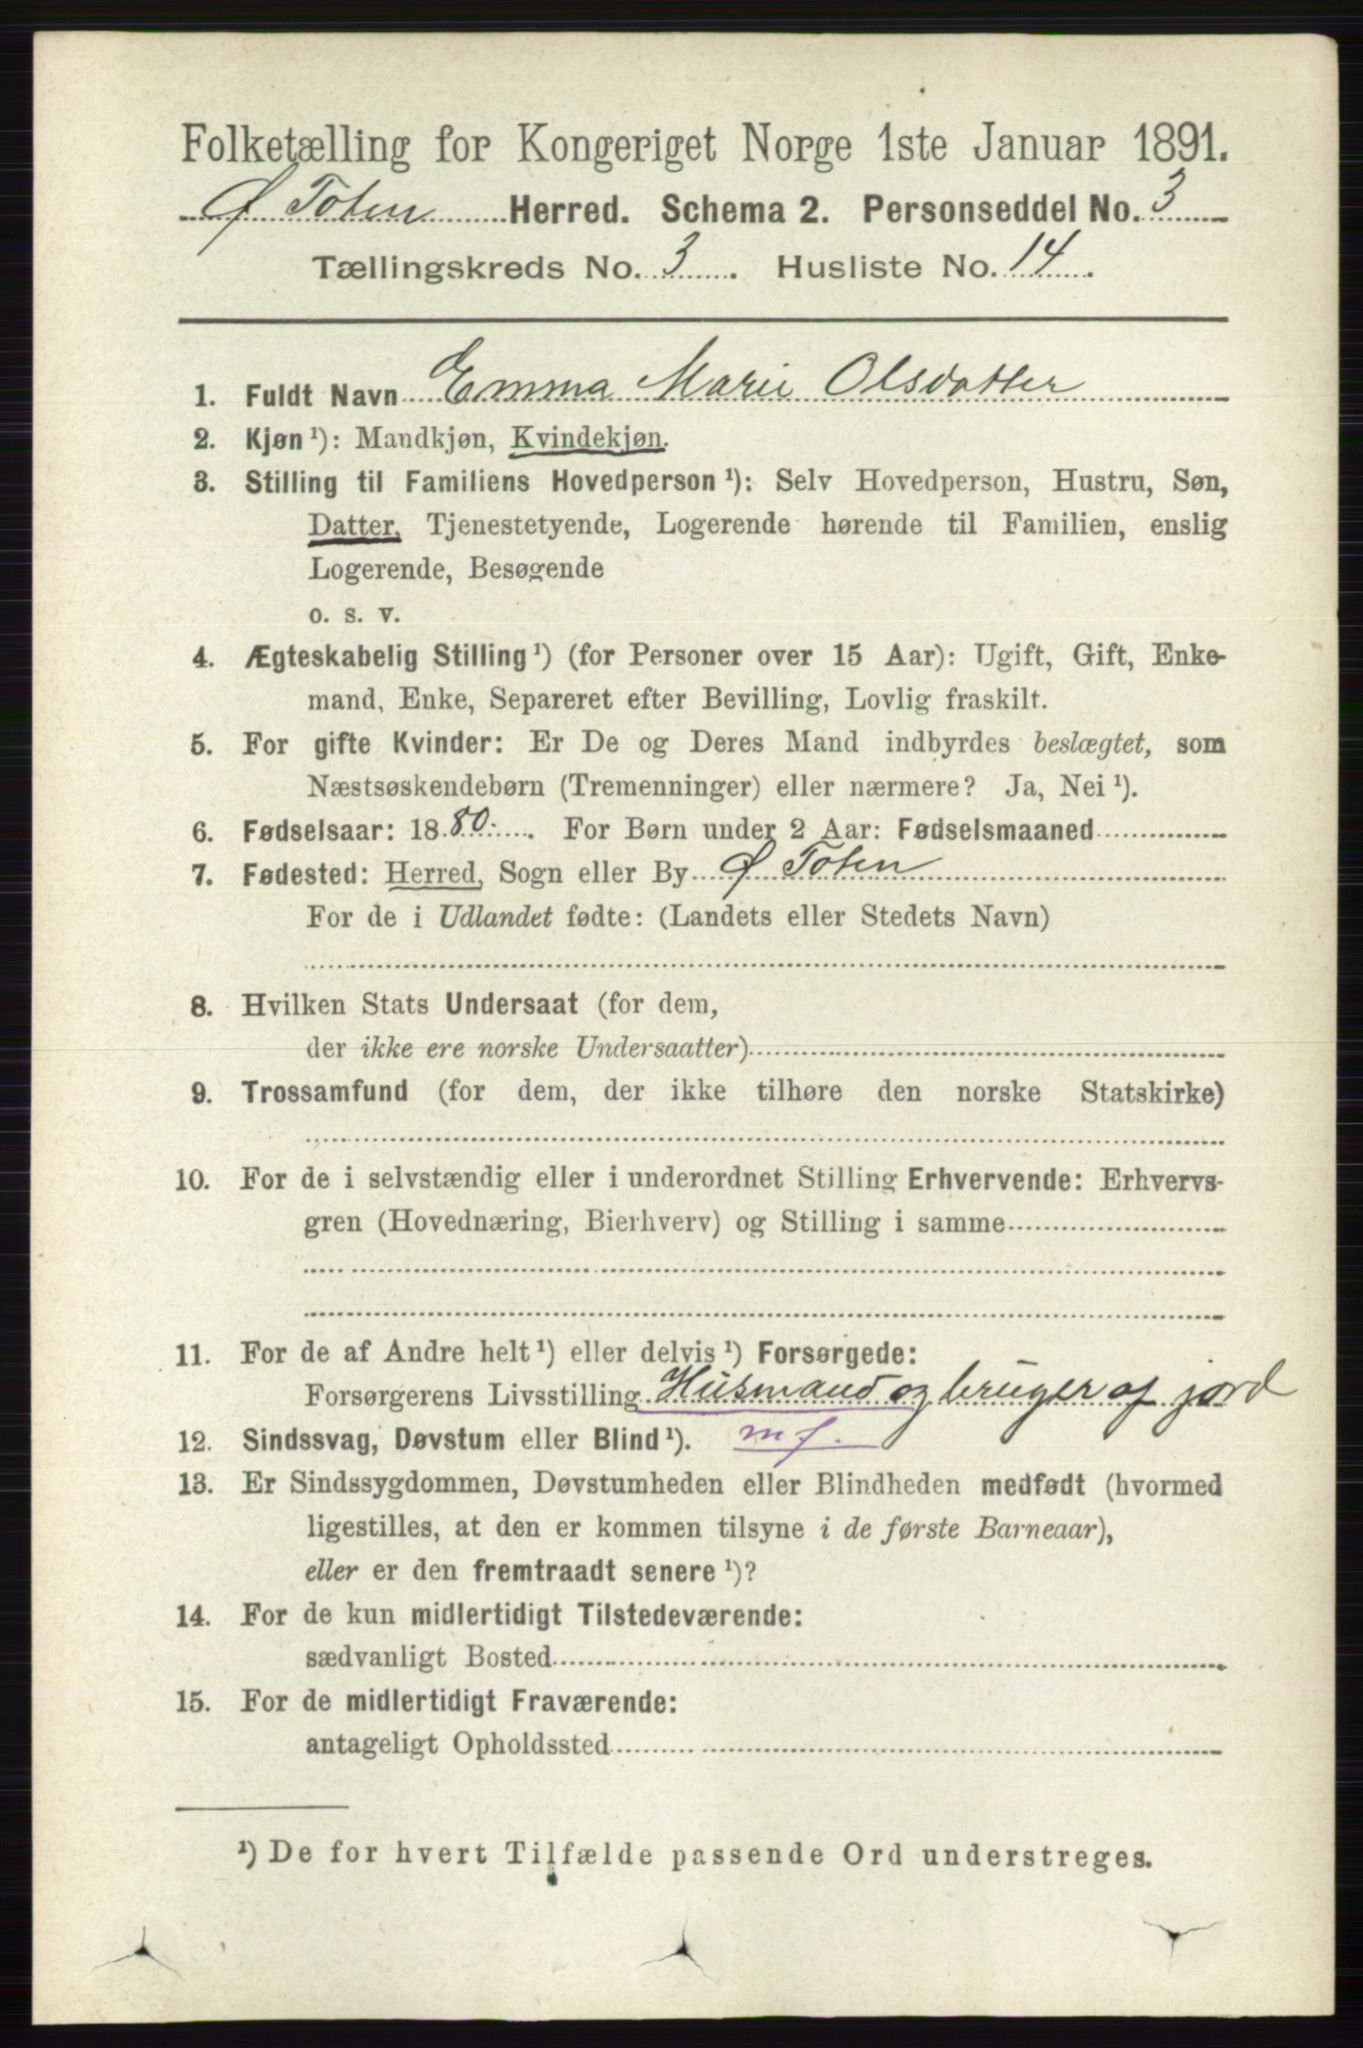 Folketælling for Kongeriget Norge 1ste Januar 1891.
Ø Toten Herred. Schema 2. Personseddel No. 3
Tællingskreds No. 3. Husliste No. 14.
1. Fuldt Navn Emma Marie Olsdatter
2. Kjøn ¹): Mandkjøn, Kvindekjøn.
3. Stilling til Familiens Hovedperson ¹): Selv Hovedperson, Hustru, Søn,
Datter, Tjenestetyende, Logerende hørende til Familien, enslig
Logerende, Besøgende
o. s. v.
4. Ægteskabelig Stilling ¹) (for Personer over 15 Aar): Ugift, Gift, Enke-
mand, Enke, Separeret efter Bevilling, Lovlig fraskilt.
5. For gifte Kvinder: Er De og Deres Mand indbyrdes beslægtet, som
Næstsøskendebørn (Tremenninger) eller nærmere? Ja, Nei ¹).
6. Fødselsaar: 1880. For Børn under 2 Aar: Fødselsmaaned
7. Fødested: Herred, Sogn eller By Ø Toten
For de i Udlandet fødte: (Landets eller Stedets Navn)
8. Hvilken Stats Undersaat (for dem,
der ikke ere norske Undersaatter)
9. Trossamfund (for dem, der ikke tilhøre den norske Statskirke)
10. For de i selvstændig eller i underordnet Stilling Erhvervende: Erhvervs-
gren (Hovednæring, Bierhverv) og Stilling i samme
11. For de af Andre helt ¹) eller delvis ¹) Forsørgede:
Forsørgerens Livsstilling Husmand og bruger af jord
12. Sindssvag, Døvstum eller Blind ¹). mf.
13. Er Sindssygdommen, Døvstumheden eller Blindheden medfødt (hvormed
ligestilles, at den er kommen tilsyne i de første Barneaar),
eller er den fremtraadt senere ¹)?
14. For de kun midlertidigt Tilstedeværende:
sædvanligt Bosted
15. For de midlertidigt Fraværende:
antageligt Opholdssted
¹) De for hvert Tilfælde passende Ord understreges.